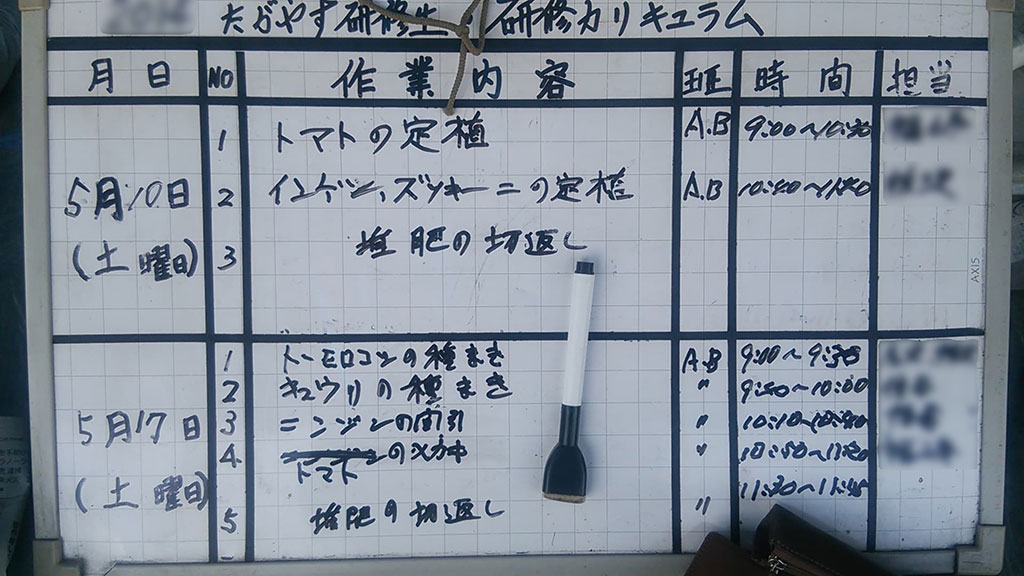 たがやす研修生 研修カリキュラム
月日 NO 作業内容 班 時間 担当
5月10日
(土曜日)
1 トマトの定植 A.B 9:00〜10:30
2 インゲン、ズッキーニの定植 A.B
3 堆肥の切返し
5月17日
(土曜日)
1 トーモロコシの種まき A.B 9:00〜9:30
2 キュウリの種まき 〃
3 ニンジンの間引 〃
4 トマトの 〃
5 堆肥の切返し 〃 11:30〜11:45
AXIS